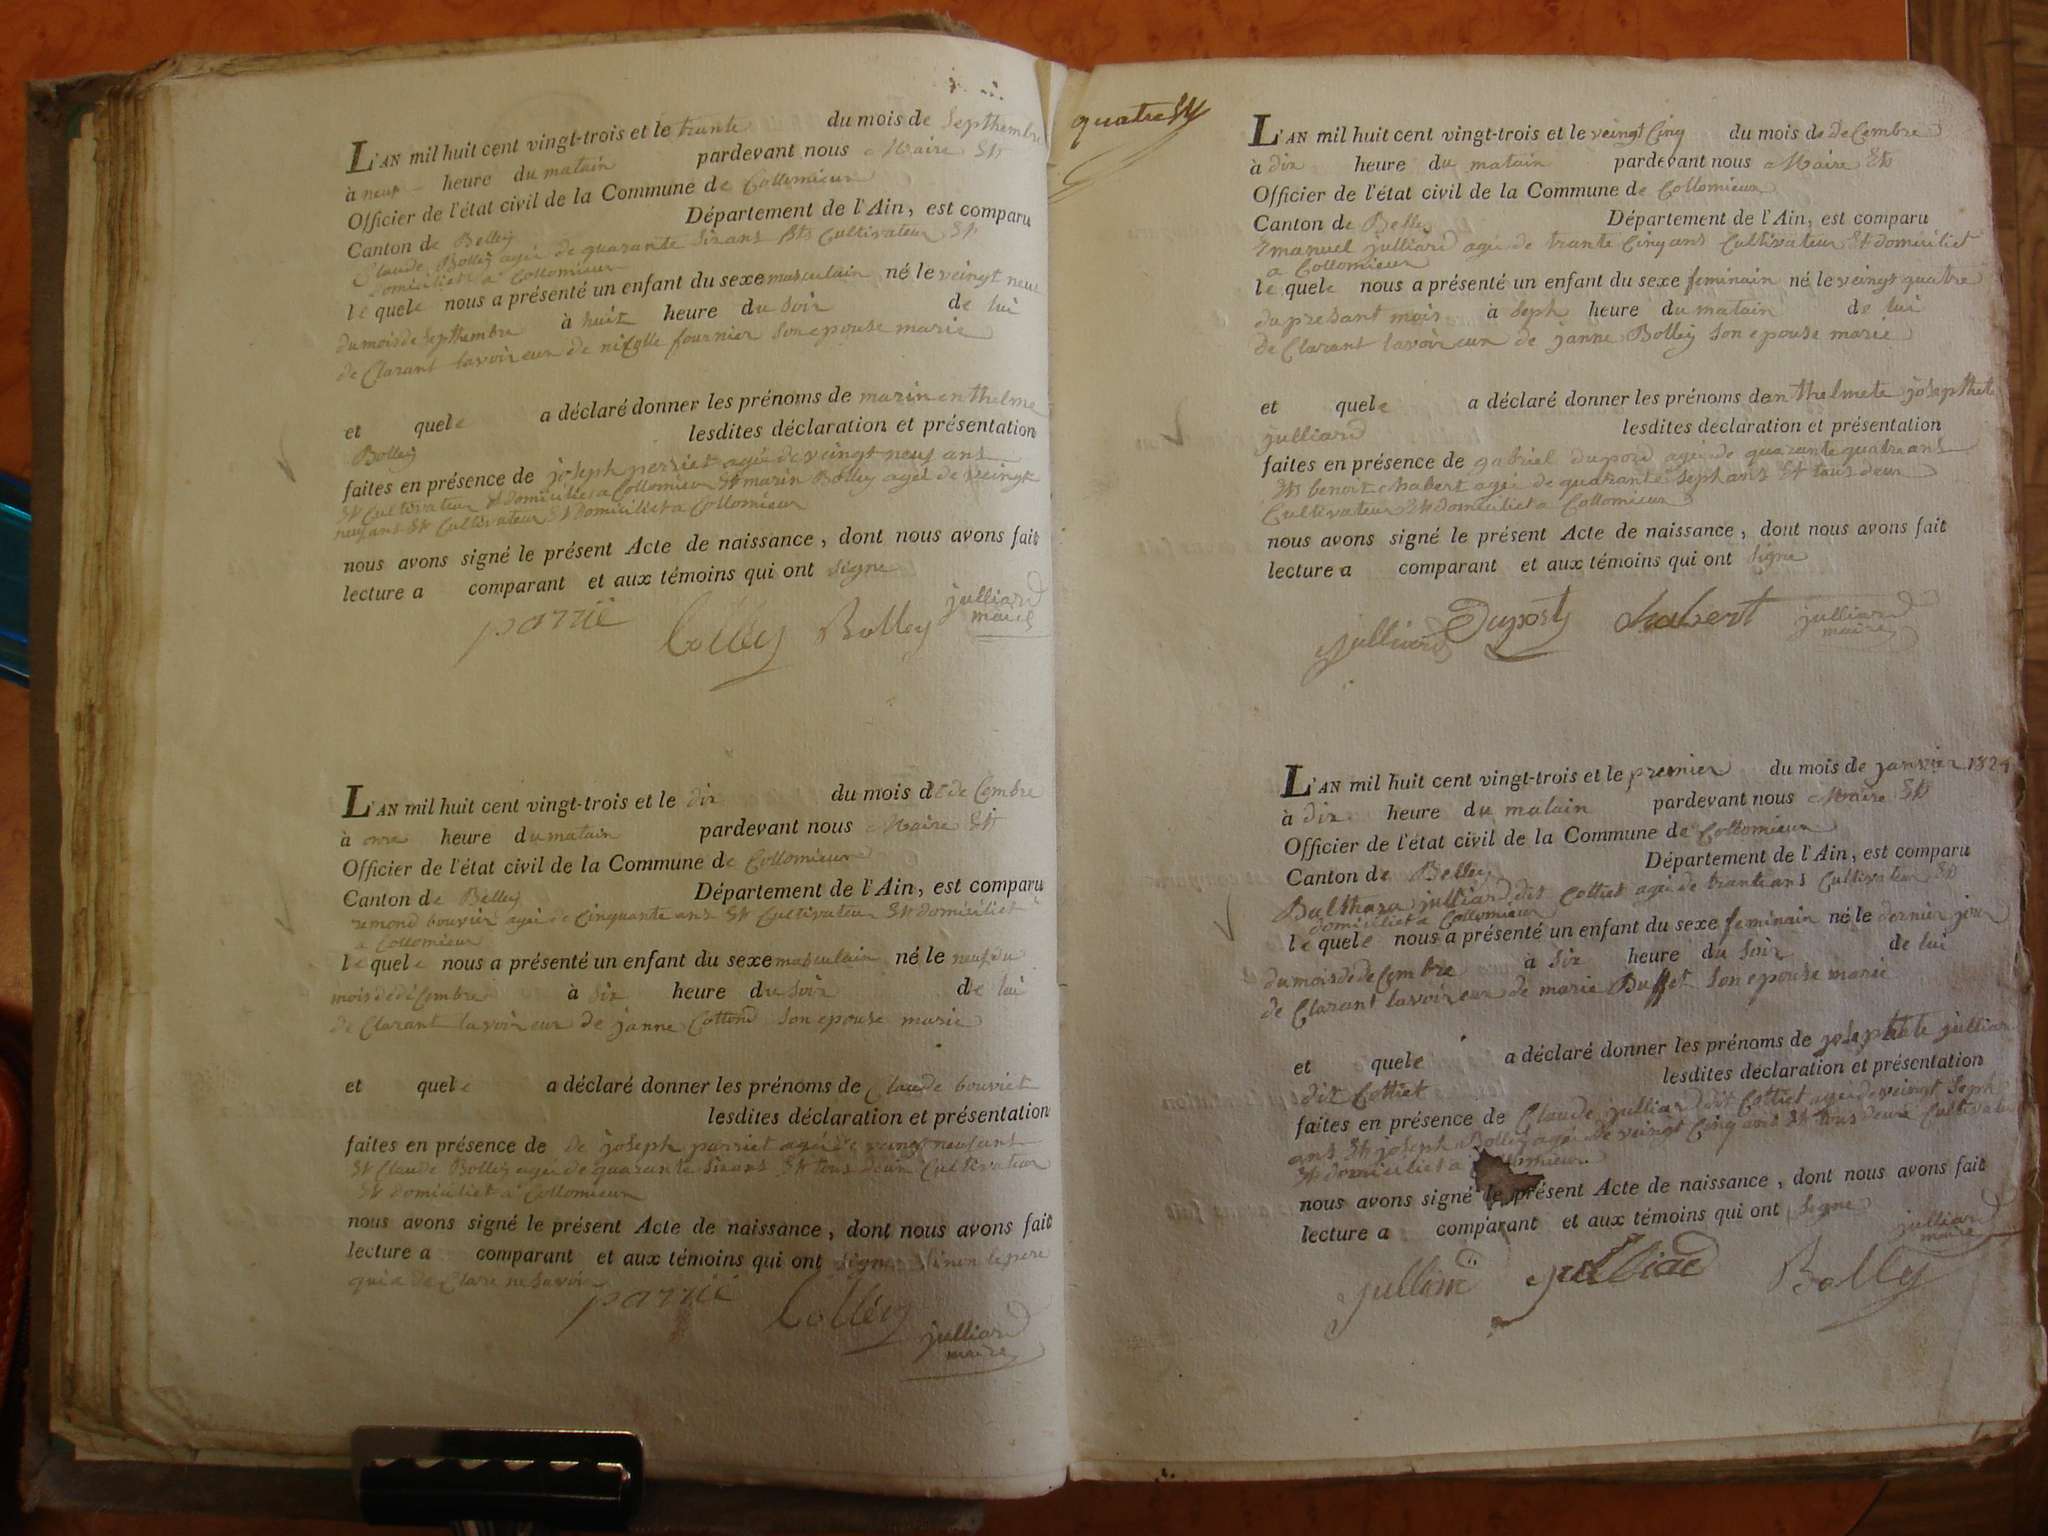 L'AN mil huit cent vingt-trois et le trante du mois de Septhembre
à neuf heure du matain pardevant nous Maire Et
Officier de l'état civil de la Commune de Collomieux
Canton de Belley Département de l'Ain, est comparu
Claude Bolley agée de quarante Sixans Et Cultivateur Et
domiciliet a Collomieux
le quele nous a présenté un enfant du sexe masculain né le veingt neuf
du mois de Septhembre à huit heure du Soir de lui
de Clarant lavoir eux de nicolle fournier Son epouse marie
et quele a déclaré donner les prénoms de marin enthelme
Bolley lesdites déclaration et présentation
faites en présence de joseph perriet agée de veingt neuf ans
Et Cultivateur Et domiciliet a Collomieux Et marin Bolley agée de veingt
neuf ans Et Cultivateur Et domiciliet a Collomieux
nous avons signé le présent Acte de naissance, dont nous avons fait
lecture a comparant et aux témoins qui ont Signe
parrie Bolley Bolley julliard
maire
L'AN mil huit cent vingt-trois et le dix du mois de de Cembre
à onze heure du matain pardevant nous Maire Et
Officier de l'état civil de la Commune de Collomieux
Canton de Belley Département de l'Ain, est comparu
remond bouvier agée de Cinquante ans Et Cultivateur Et domiciliet
a Collomieux
le quele nous a présenté un enfant du sexe masculain né le neuf du
mois de de Cembre à Six heure du Soir de lui
de Clarant lavoir eux de janne Cottond Son epouse marie
et quele a déclaré donner les prénoms de Claude bouviet
lesdites déclaration et présentation
faites en présence de de joseph parriet agée de veingt neuf ans
Et Claude Bolley agée de quarante Sixans Et tous deux Cultivateur
Et domiciliet a Collomieux
nous avons signé le présent Acte de naissance, dont nous avons fait
lecture a comparant et aux témoins qui ont Signe Sinon le pere
qui a de Clare ne Savoir
parrie Bolley
julliard
maire
quatre
L'AN mil huit cent vingt-trois et le veingt Cinq du mois de de Cembre
à dix heure du matain pardevant nous Maire Et
Officier de l'état civil de la Commune de Collomieux
Canton de Belley Département de l'Ain, est comparu
Emanuel julliard agée de trante Cinq ans Cultivateur Et domiciliet
a Collomieux
le quele nous a présenté un enfant du sexe feminain né le veingt quatre
du presant mois à Seph heure du matain de lui
de Clarant lavoir eux de janne Bolley Son epouse marie
et quele a déclaré donner les prénoms de enthelmete josephete
julliard lesdites déclaration et présentation
faites en présence de gabriel dupord agée de quarante quatre ans
Et benoit chabert agée de quarante Seph ans Et tous deux
Cultivateur Et domiciliet a Collomieux
nous avons signé le présent Acte de naissance, dont nous avons fait
lecture a comparant et aux témoins qui ont Signe
julliard Duport chabert julliard
maire
L'AN mil huit cent vingt-trois et le premier du mois de janvier 1824
à dix heure du matain pardevant nous Maire Et
Officier de l'état civil de la Commune de Collomieux
Canton de Belley Département de l'Ain, est comparu
Balthaza julliard dit Cottiet agée de trante ans Cultivateur Et
domiciliet a Collomieux
le quele nous a présenté un enfant du sexe feminain né le dernier jour
du mois de de Cembre à Six heure du Soir de lui
de Clarant lavoir eux de marie Buffet Son epouse marie
et quele a déclaré donner les prénoms de josephete julliard
dit Cottiet lesdites déclaration et présentation
faites en présence de Claude julliard dit Cottiet agée de veingt Seph
ans Et joseph Bolley agée de veingt Cinq ans Et tous deux Cultivateur
Et domiciliet a Collomieux
nous avons signé le présent Acte de naissance, dont nous avons fait
lecture a comparant et aux témoins qui ont Signe
julliard
maire
julliard julliard Bolley